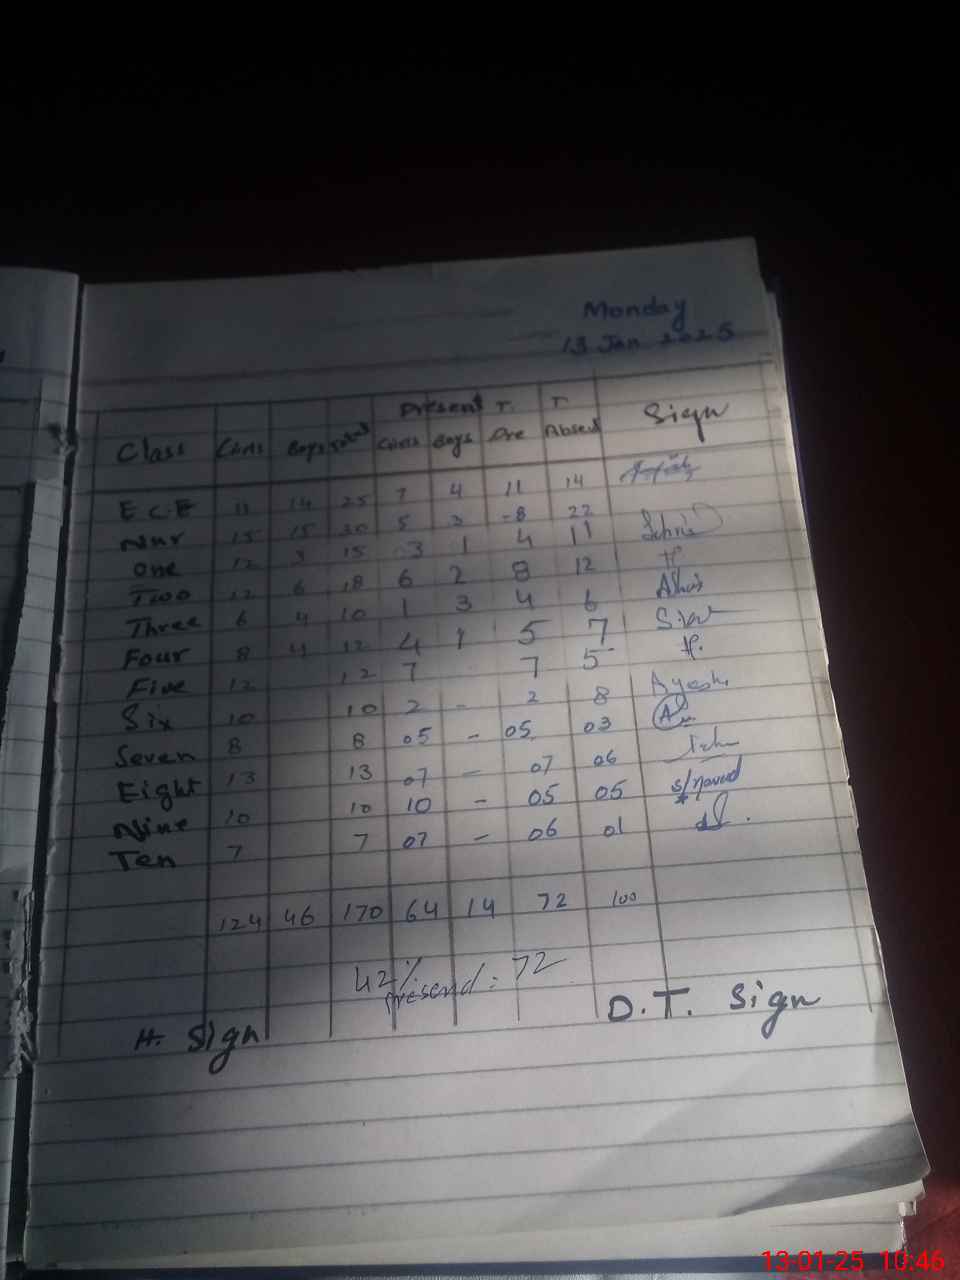 Monday
13 Jan 2025
Present T. T.
Class Girls Boys Total Girls Boys Pre Absed Sign
E C E 11 14 25 7 4 11 14
Nur 15 15 30 5 3 -8 22
One 12 3 15 3 1 4 11
Two 12 6 18 6 2 8 12
Three 6 4 10 1 3 4 6
Four 8 4 12 4 1 5 7
Five 12 12 7 7 5
Six 10 10 2 - 2 8
Seven 8 8 05 - 05 03
Eight 13 13 07 - 07 06
Nine 10 10 10 - 05 05
Ten 7 7 07 - 06 01
124 46 170 64 14 72 100
42%
Presend: 72
H. Sign D.T. Sign
13-01-25 10:46